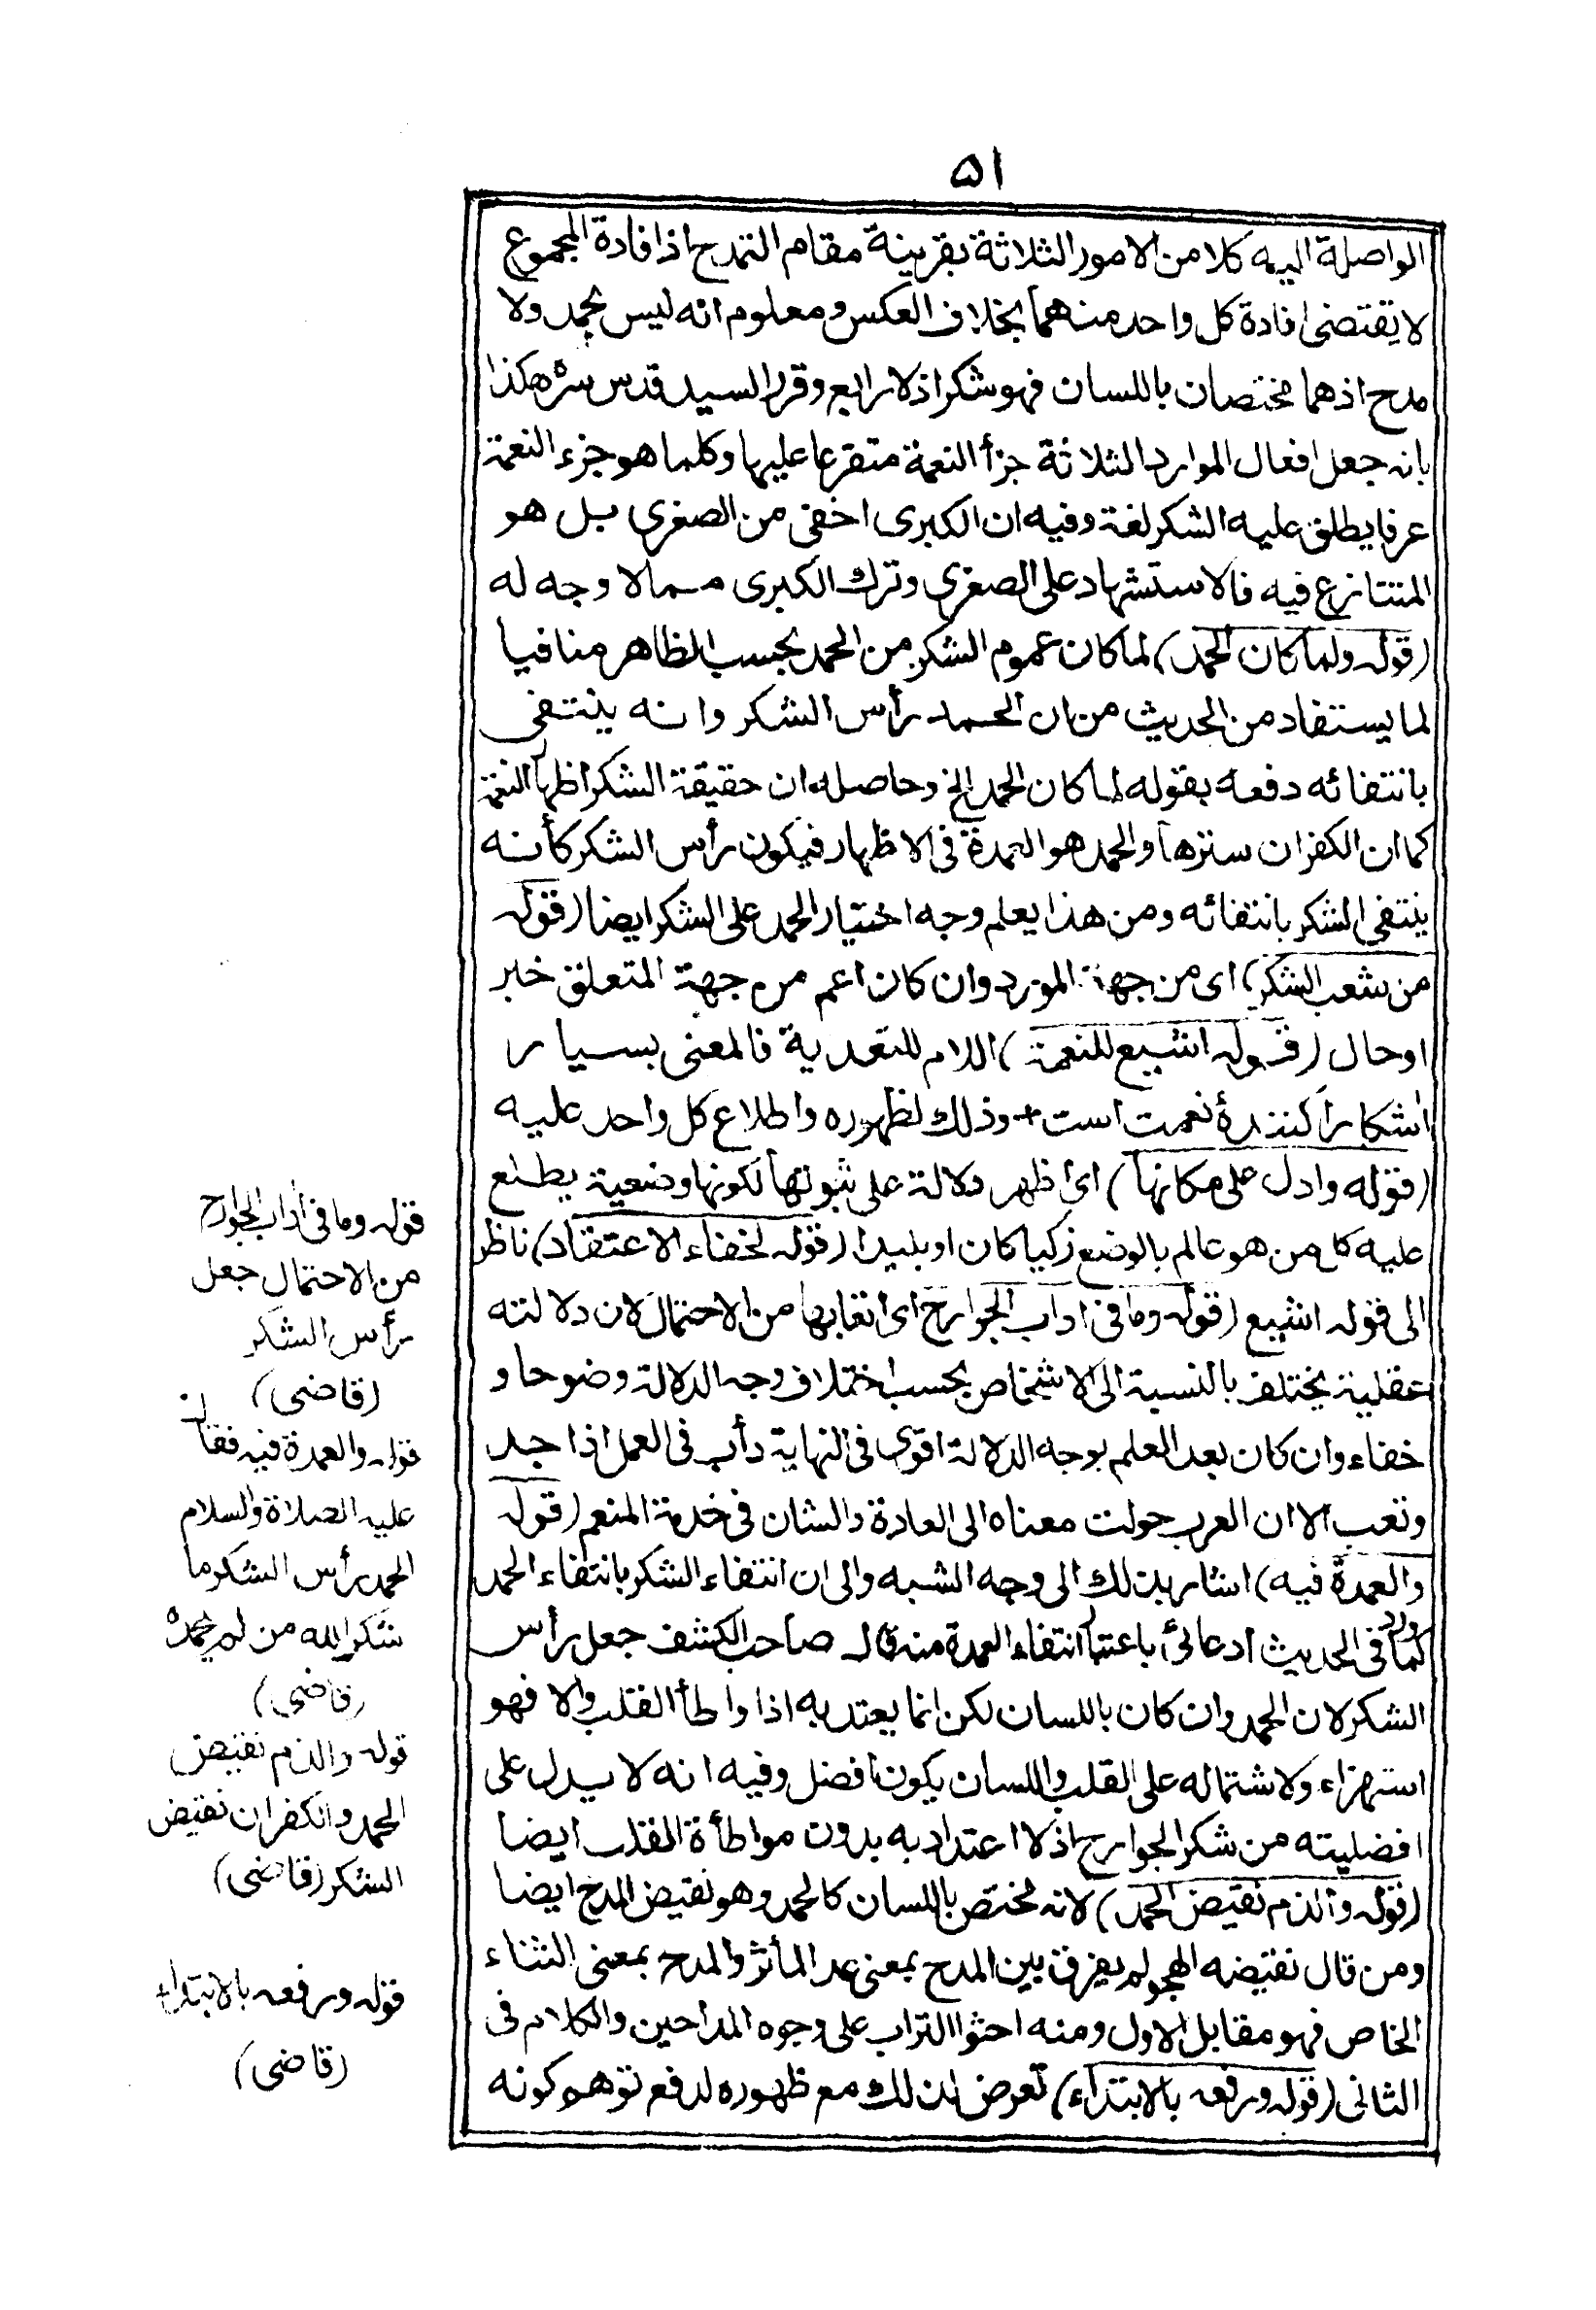 ۵۱
الواصلة اليه كلا من الامور الثلاثة بقرينة مقام التمدح اذ افادة المجموع
لا يقتضى افادة كل واحد منهما بخلاف العكس ومعلوم انه ليس بحمد ولا
مدح اذ هما مختصان باللسان فهو شكر اذ لا رابع وقرر السيد قدس سره هكذا
بانه جعل افعال الموارد الثلاثة جزأ النعمة متفرعا عليها وكلما هو جزء النعمة
عرفا يطلق عليه الشكر لغة وفيه ان الكبرى اخفى من الصغرى بل هو
المتنازع فيه فالاستشهاد على الصغرى وترك الكبرى مما لا وجه له
(قوله ولما كان الحمد) لما كان عموم الشكر من الحمد بحسب الظاهر منافيا
لما يستفاد من الحديث من ان الحمد رأس الشكر وانه ينتفى
بانتفائه دفعه بقوله لما كان الحمد الخ وحاصله ان حقيقة الشكر اظهار النعمة
كما ان الكفران سترها والحمد هو العمدة فى الاظهار فيكون رأس الشكر كأنه
ينتفى الشكر بانتفائه ومن هذا يعلم وجه اختيار الحمد على الشكر ايضا (قوله
من شعب الشكر) اى من جهة المورد وان كان اعم من جهة المتعلق خبر
او حال (قوله اشيع للنعمة) اللام للتعدية فالمعنى بسيار
اشكارا كنندهٔ نعمت است + وذلك لظهوره واطلاع كل واحد عليه
(قوله وادل على مكانها) اى اظهر دلالة على ثبوتها لكونها وضعية يطلع
عليه كل من هو عالم بالوضع زكيا كان او بليدا (قوله لخفاء الاعتقاد) ناظر
الى قوله اشيع (قوله وما فى اداب الجوارح اى اتعابها من الاحتمال لان دلالته
عقلية يختلف بالنسبة الى الاشخاص بحسب اختلاف وجه الدلالة وضوحا و
خفاء وان كان بعد العلم بوجه الدلالة اقوى فى النهاية دأب فى العمل اذا جد
وتعب الا ان العرب حولت معناه الى العادة والشان فى خدمة المنعم (قوله
والعمدة فيه) اشار بذلك الى وجه الشبه والى ان انتفاء الشكر بانتفاء الحمد
كما ورد فى الحديث ادعائى باعتبار انتفاء العمدة منه قال صاحب الكشف جعل رأس
الشكر لان الحمد وان كان باللسان لكن انما يعتد به اذا واطأ القلب والا فهو
استهزاء ولاشتماله على القلب واللسان يكون افضل وفيه انه لا يدل على
افضليته من شكر الجوارح اذ لا اعتداد به بدون مواطأة القلب ايضا
(قوله والذم نقيض الحمد) لانه مختص باللسان كالحمد وهو نقيض المدح ايضا
ومن قال نقيضه الهجو لم يفرق بين المدح بمعنى عد المأثر والمدح بمعنى الثناء
الخاص فهو مقابل الاول ومنه احثوا التراب على وجوه المداحين والكلام فى
الثانى (قوله ورفعه بالابتداء) تعرض لذلك مع ظهوره لدفع توهم كونه
قوله وما فى اداب الجوارح
من الاحتمال جعل
رأس الشكر
(قاضى)
قوله والعمدة فيه فقال
عليه الصلاة والسلام
الحمد رأس الشكر وما
شكر الله من لم يحمده
(قاضى)
قوله والذم نقيض
الحمد والكفران نقيض
الشكر (قاضى)
قوله ورفعه بالابتداء
(قاضى)